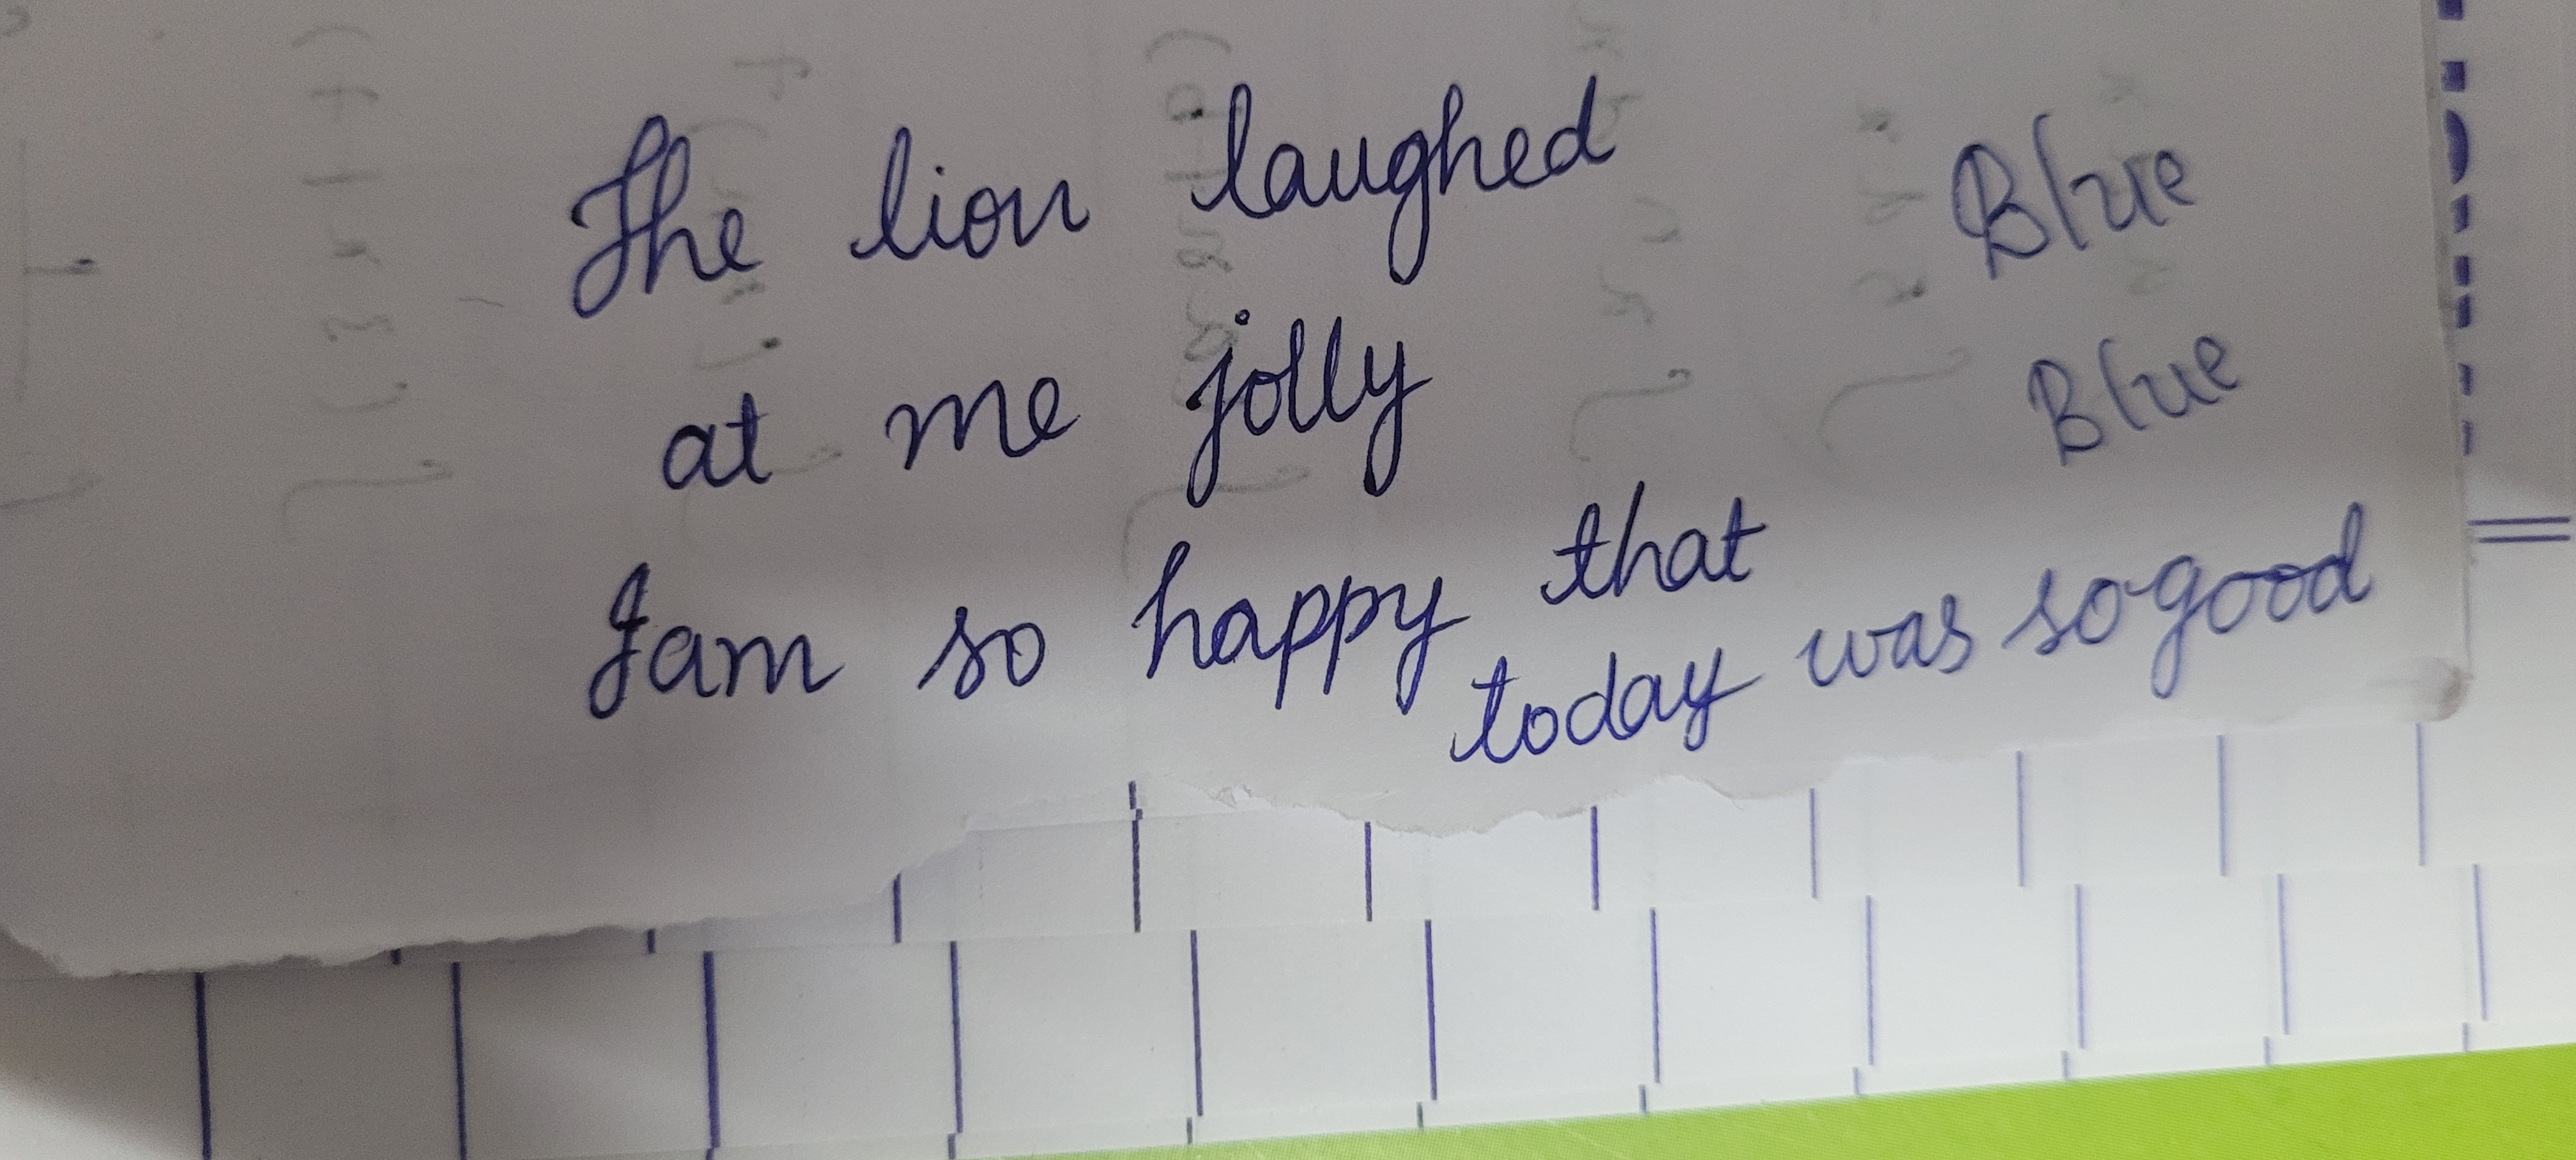 The lion laughed
at me jolly
I am so happy that
today was so good
Blue
Blue